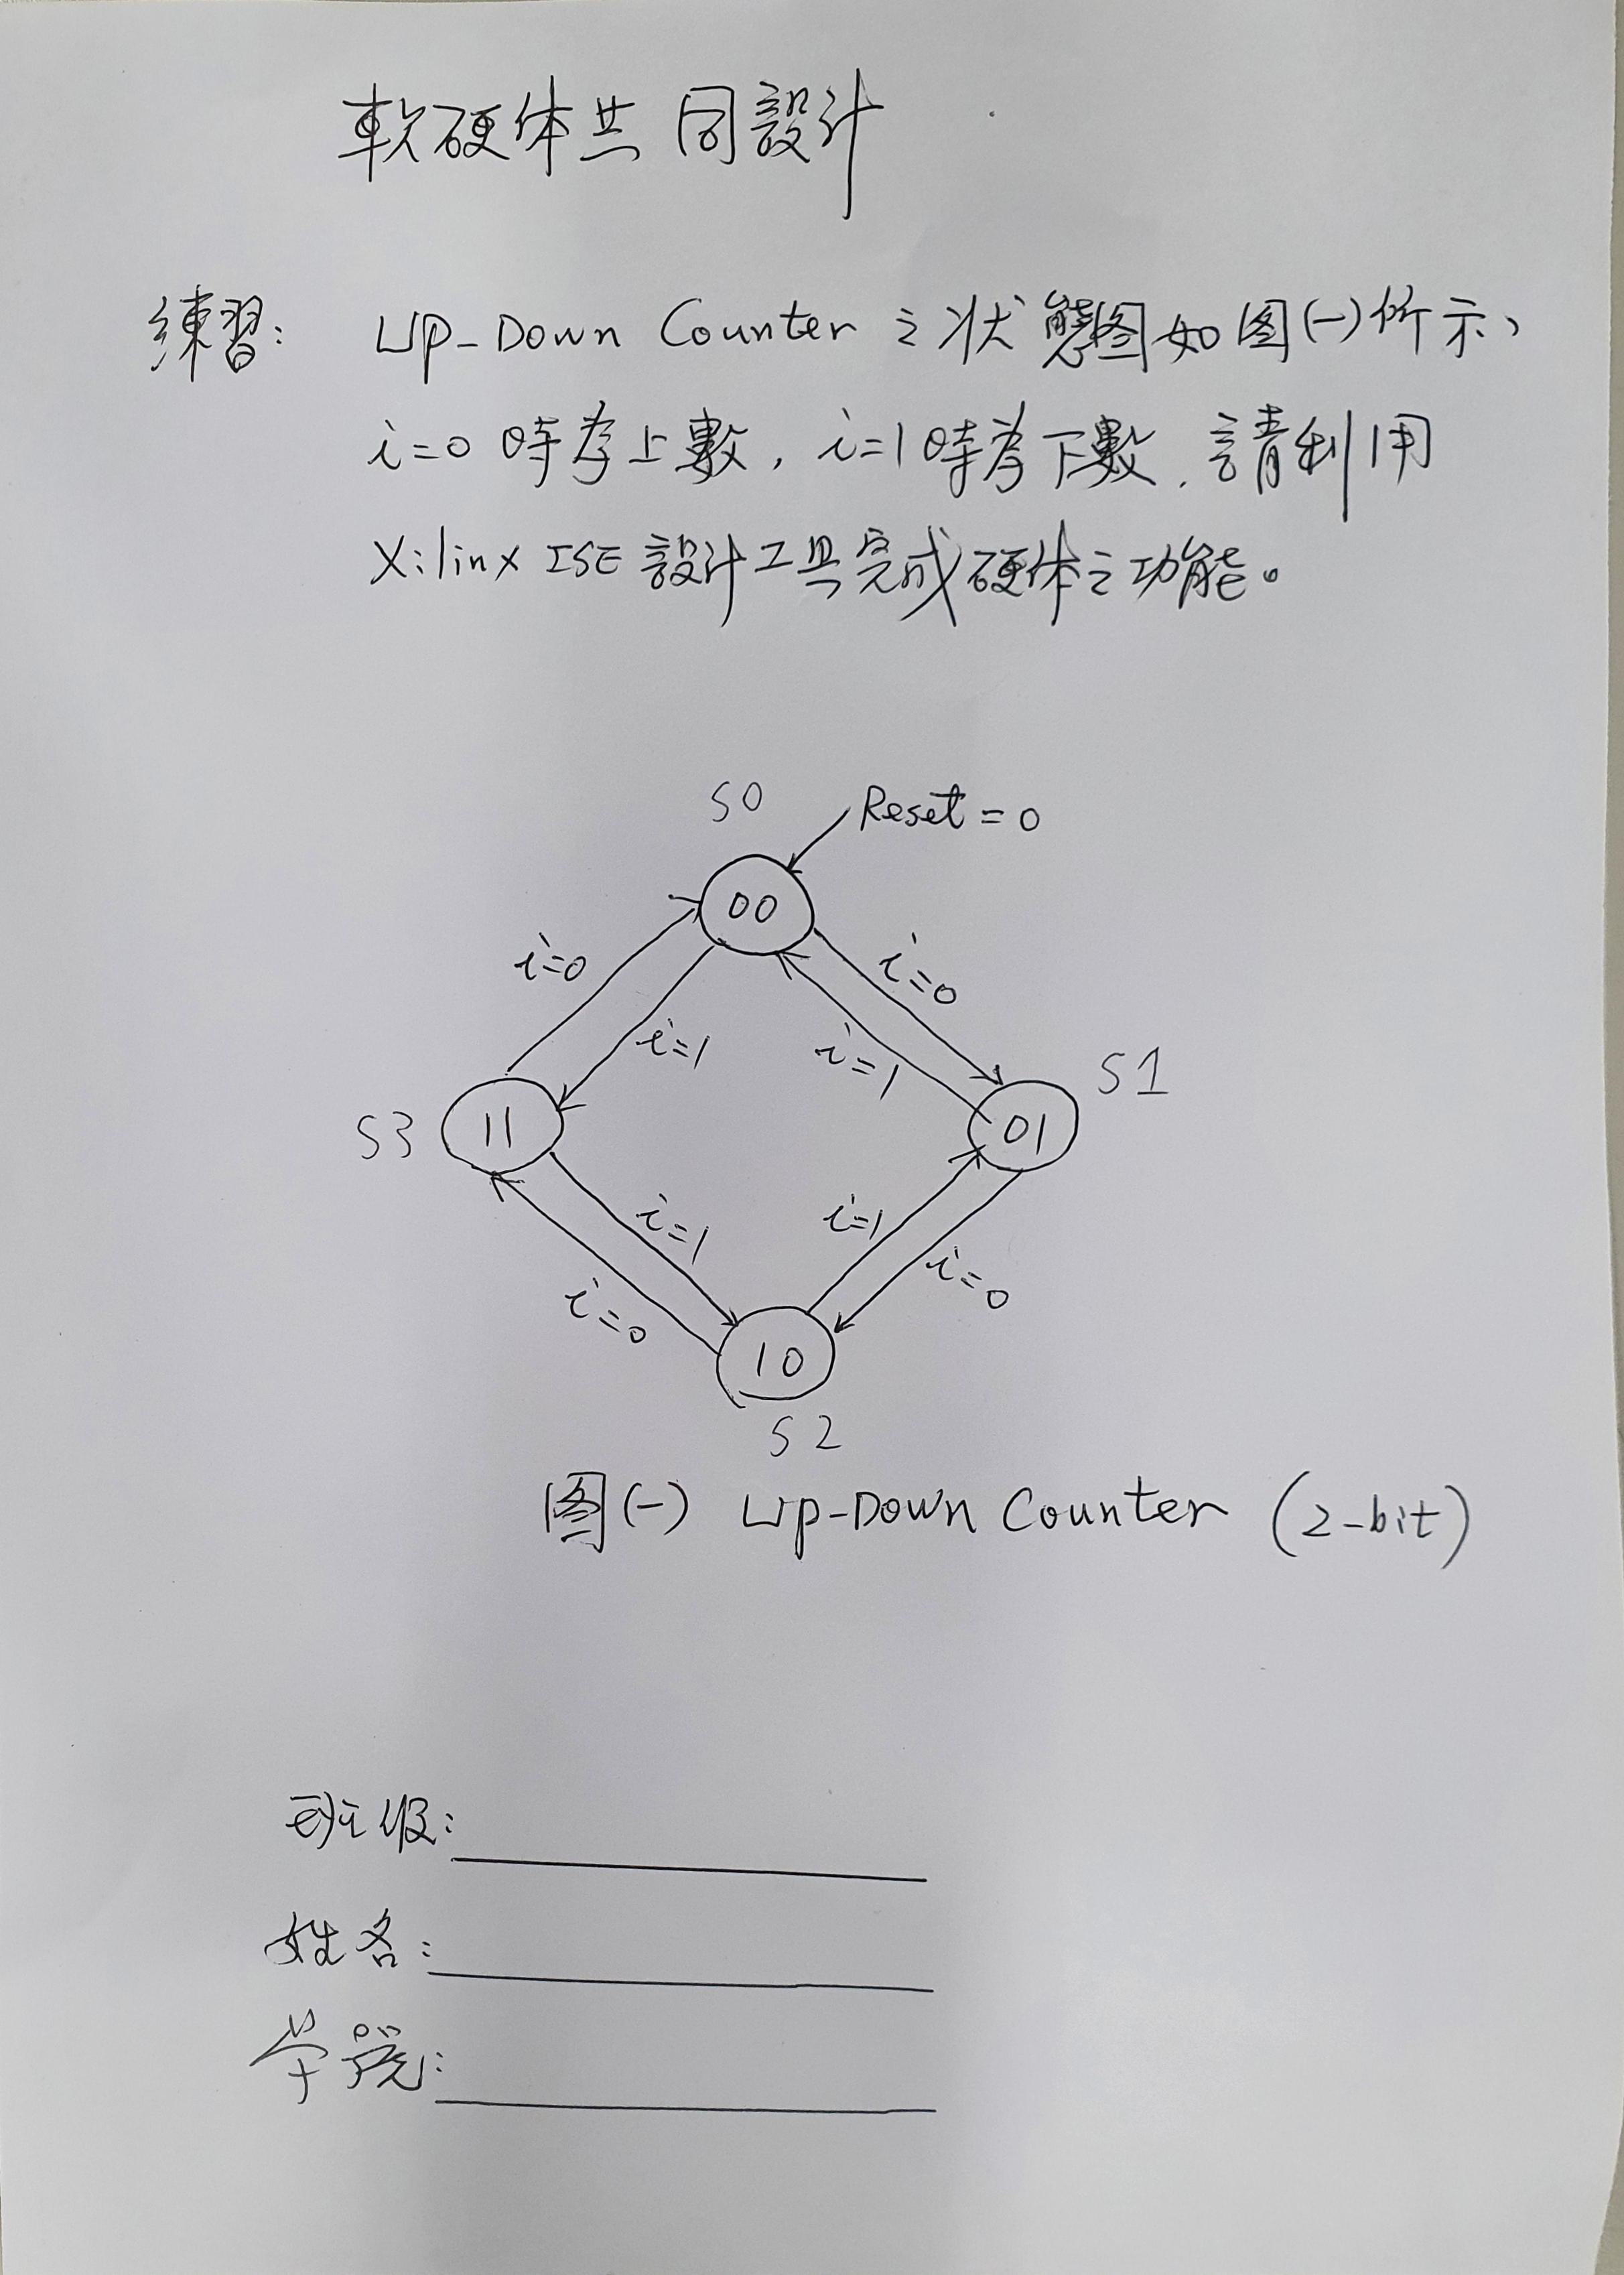 軟硬体共同設計
練習: Up-Down Counter 之状態图如图(一)所示、
i=0 時為上數, i=1 時為下數, 請利用
Xilinx ISE 設計工具完成硬体之功能。
S0
Reset = 0
00
i=0
i=0
i=1
i=1
S1
S3
11
01
i=1
i=1
i=0
i=0
10
S2
图(一) Up-Down Counter (2-bit)
班级:
姓名:
学院: